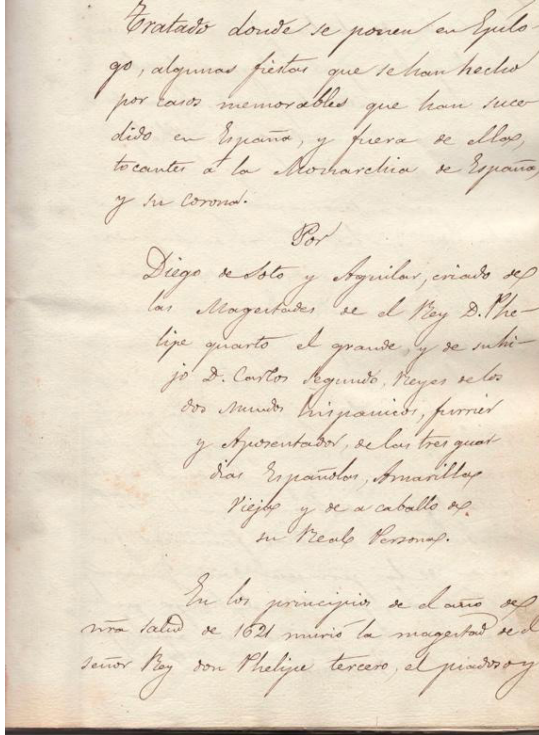 Tratado donde se ponen en Epilo-
go, algunas fiestas que se han hecho
por casos memorables que han suce
dido en España, y fuera de ella,
tocantes á la Monarchia de España,
y su corona.
Por
Diego de Soto y Aguilar, criado de
las Magestades de el Rey D. Phe-
lipe quarto el grande, y de su hi-
jo D. Carlos segundo, Reyes de los
dos Mundos hispanicos, furrier
y Aposentador, de las tres guar
dias Españolas, Amarilla,
Vieja y de a caballo de
su Real Persona.
En los principios de el año de
nrã salud de 1621 murió la magestad de el
señor Rey don Phelipe tercero, el piadoso y